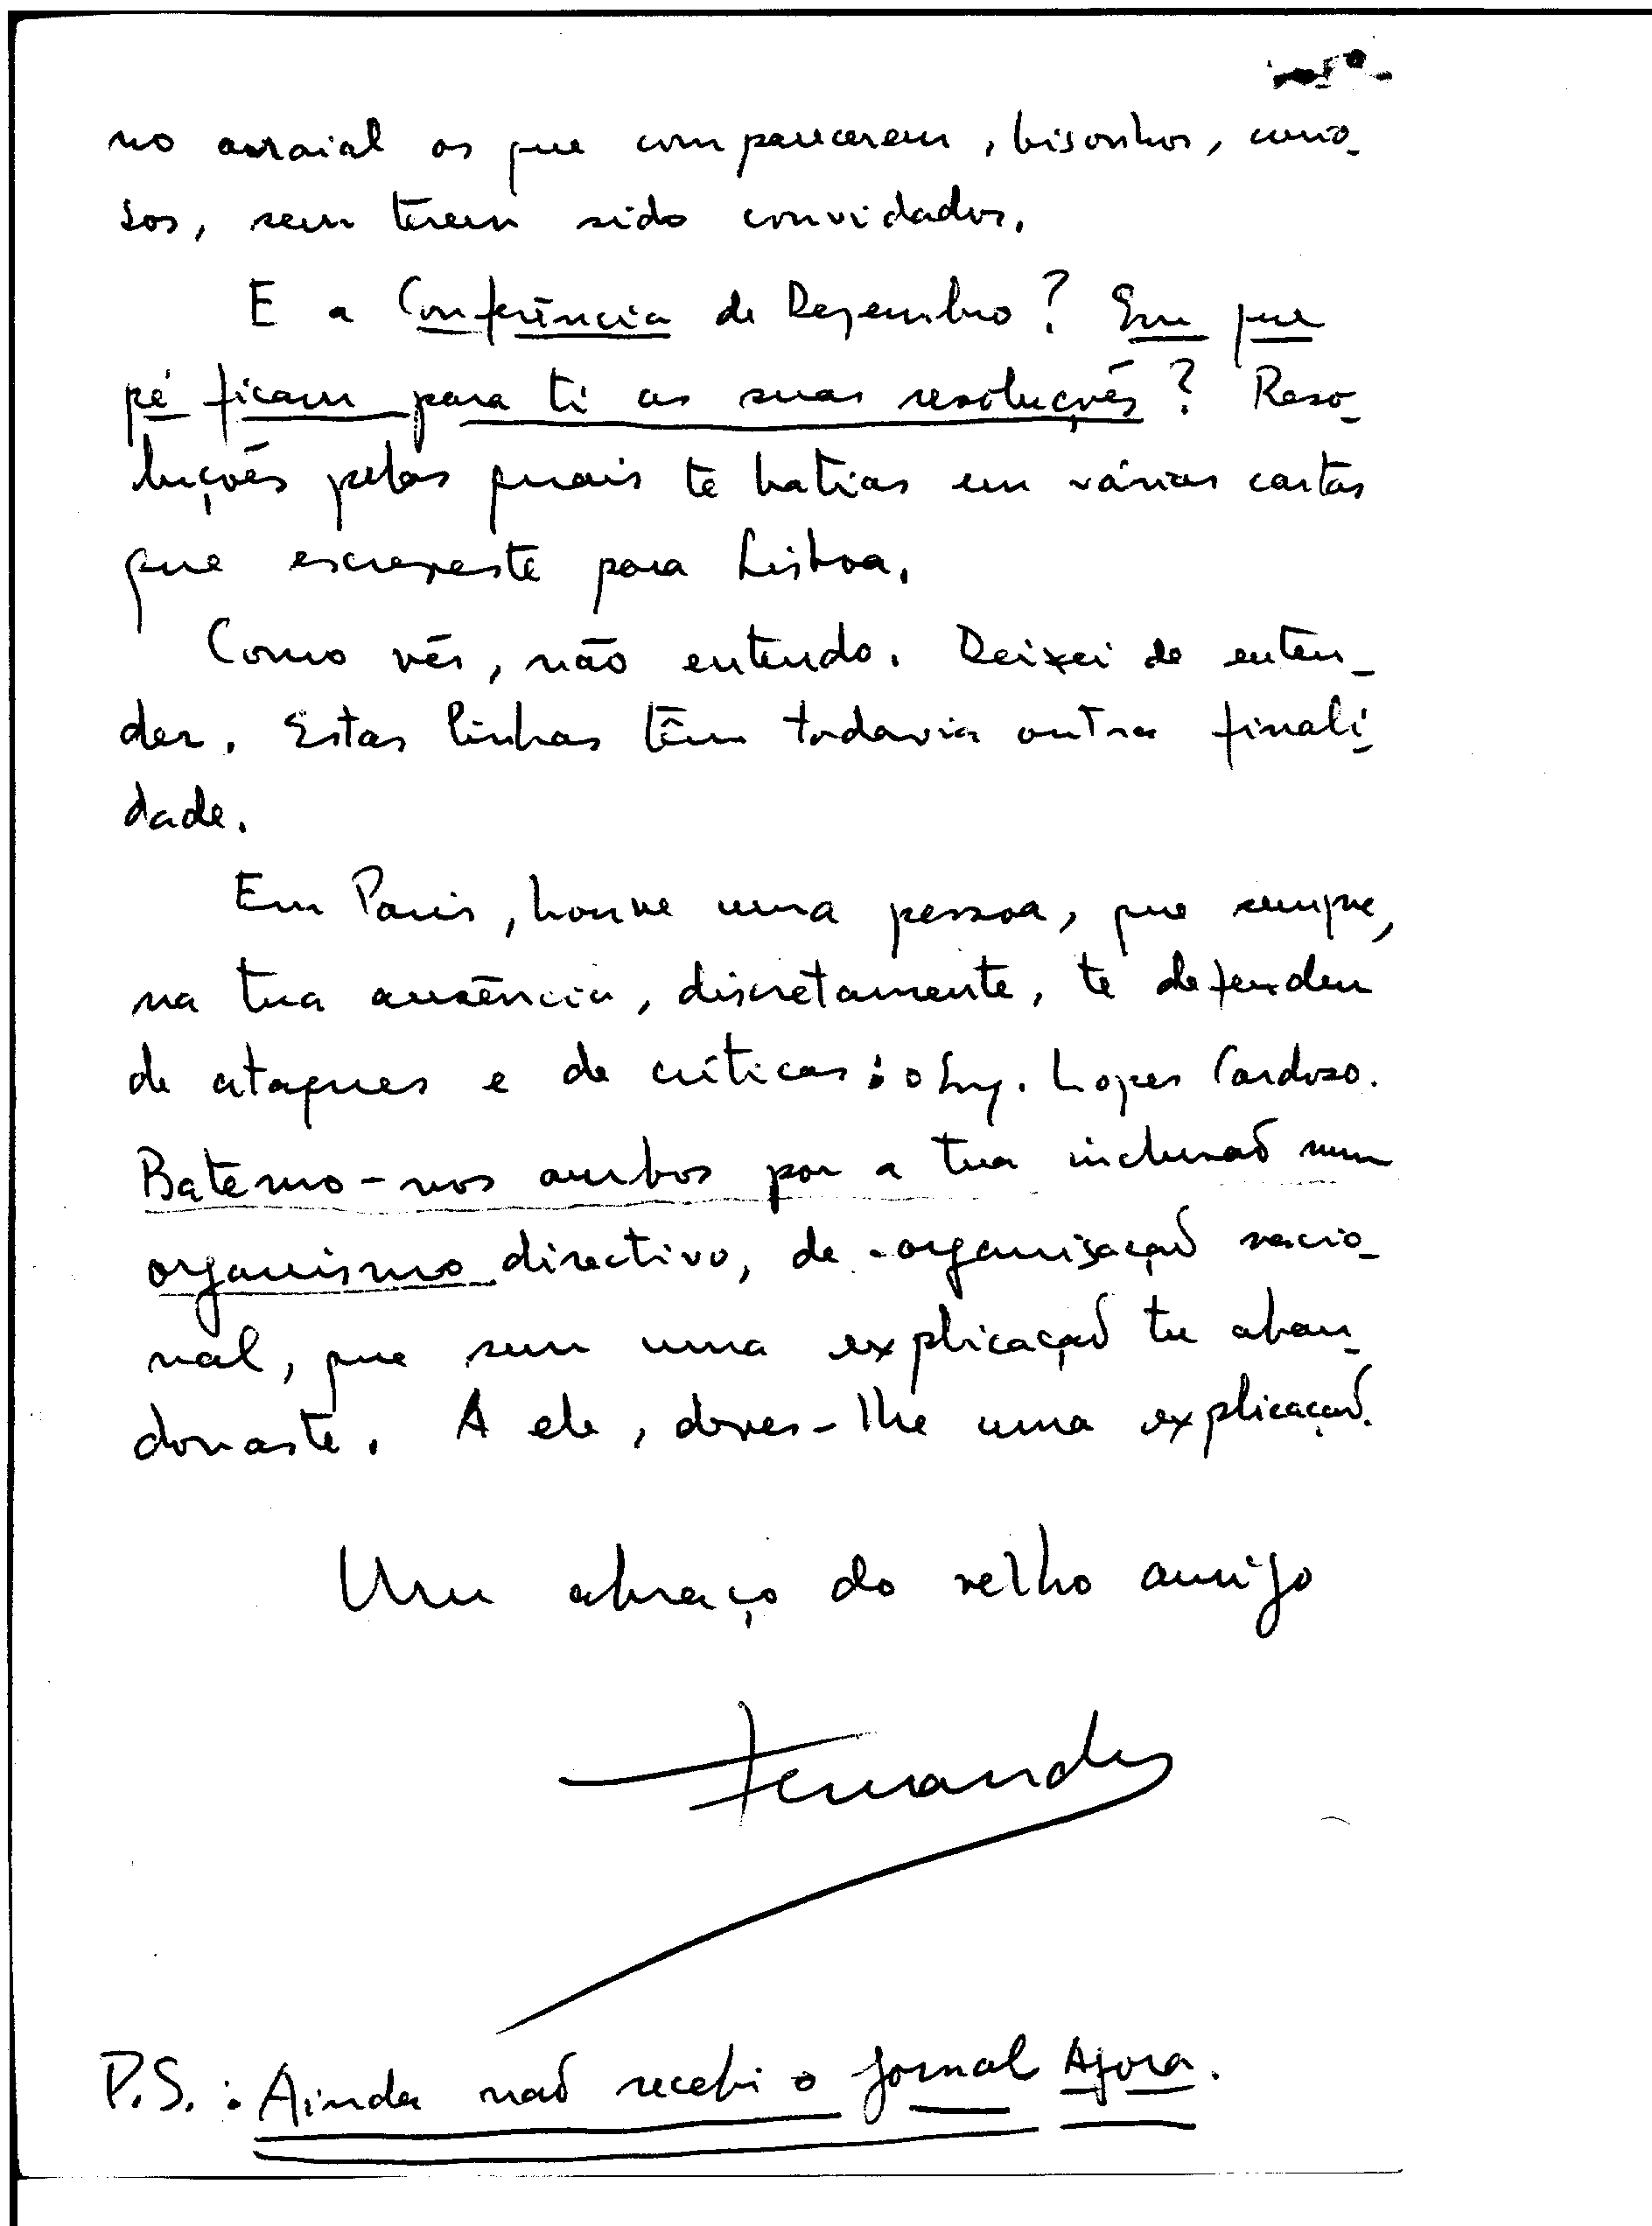 no arraial os que compareceram, bisonhos, curio-
sos, sem terem sido convidados.
E a Conferência de Dezembro? Em que
pé ficam para ti as suas resoluções? Reso-
luções pelas quais te batias em várias cartas
que escreveste para Lisboa.
Como vês, não entendo. Deixei de enten-
der. Estas linhas têm todavia outra finali-
dade.
Em Paris, houve uma pessoa, que sempre,
na tua ausência, discretamente, te defendeu
de ataques e de críticas: o Eng. Lopes Cardoso.
Batemo-nos ambos por a tua inclusão num
organismo directivo, de organização nacio-
nal, que sem uma explicação tu aban-
donaste. A ele, deves-lhe uma explicação.
Um abraço do velho amigo
Fernandes
P.S.: Ainda não recebi o jornal Agora.